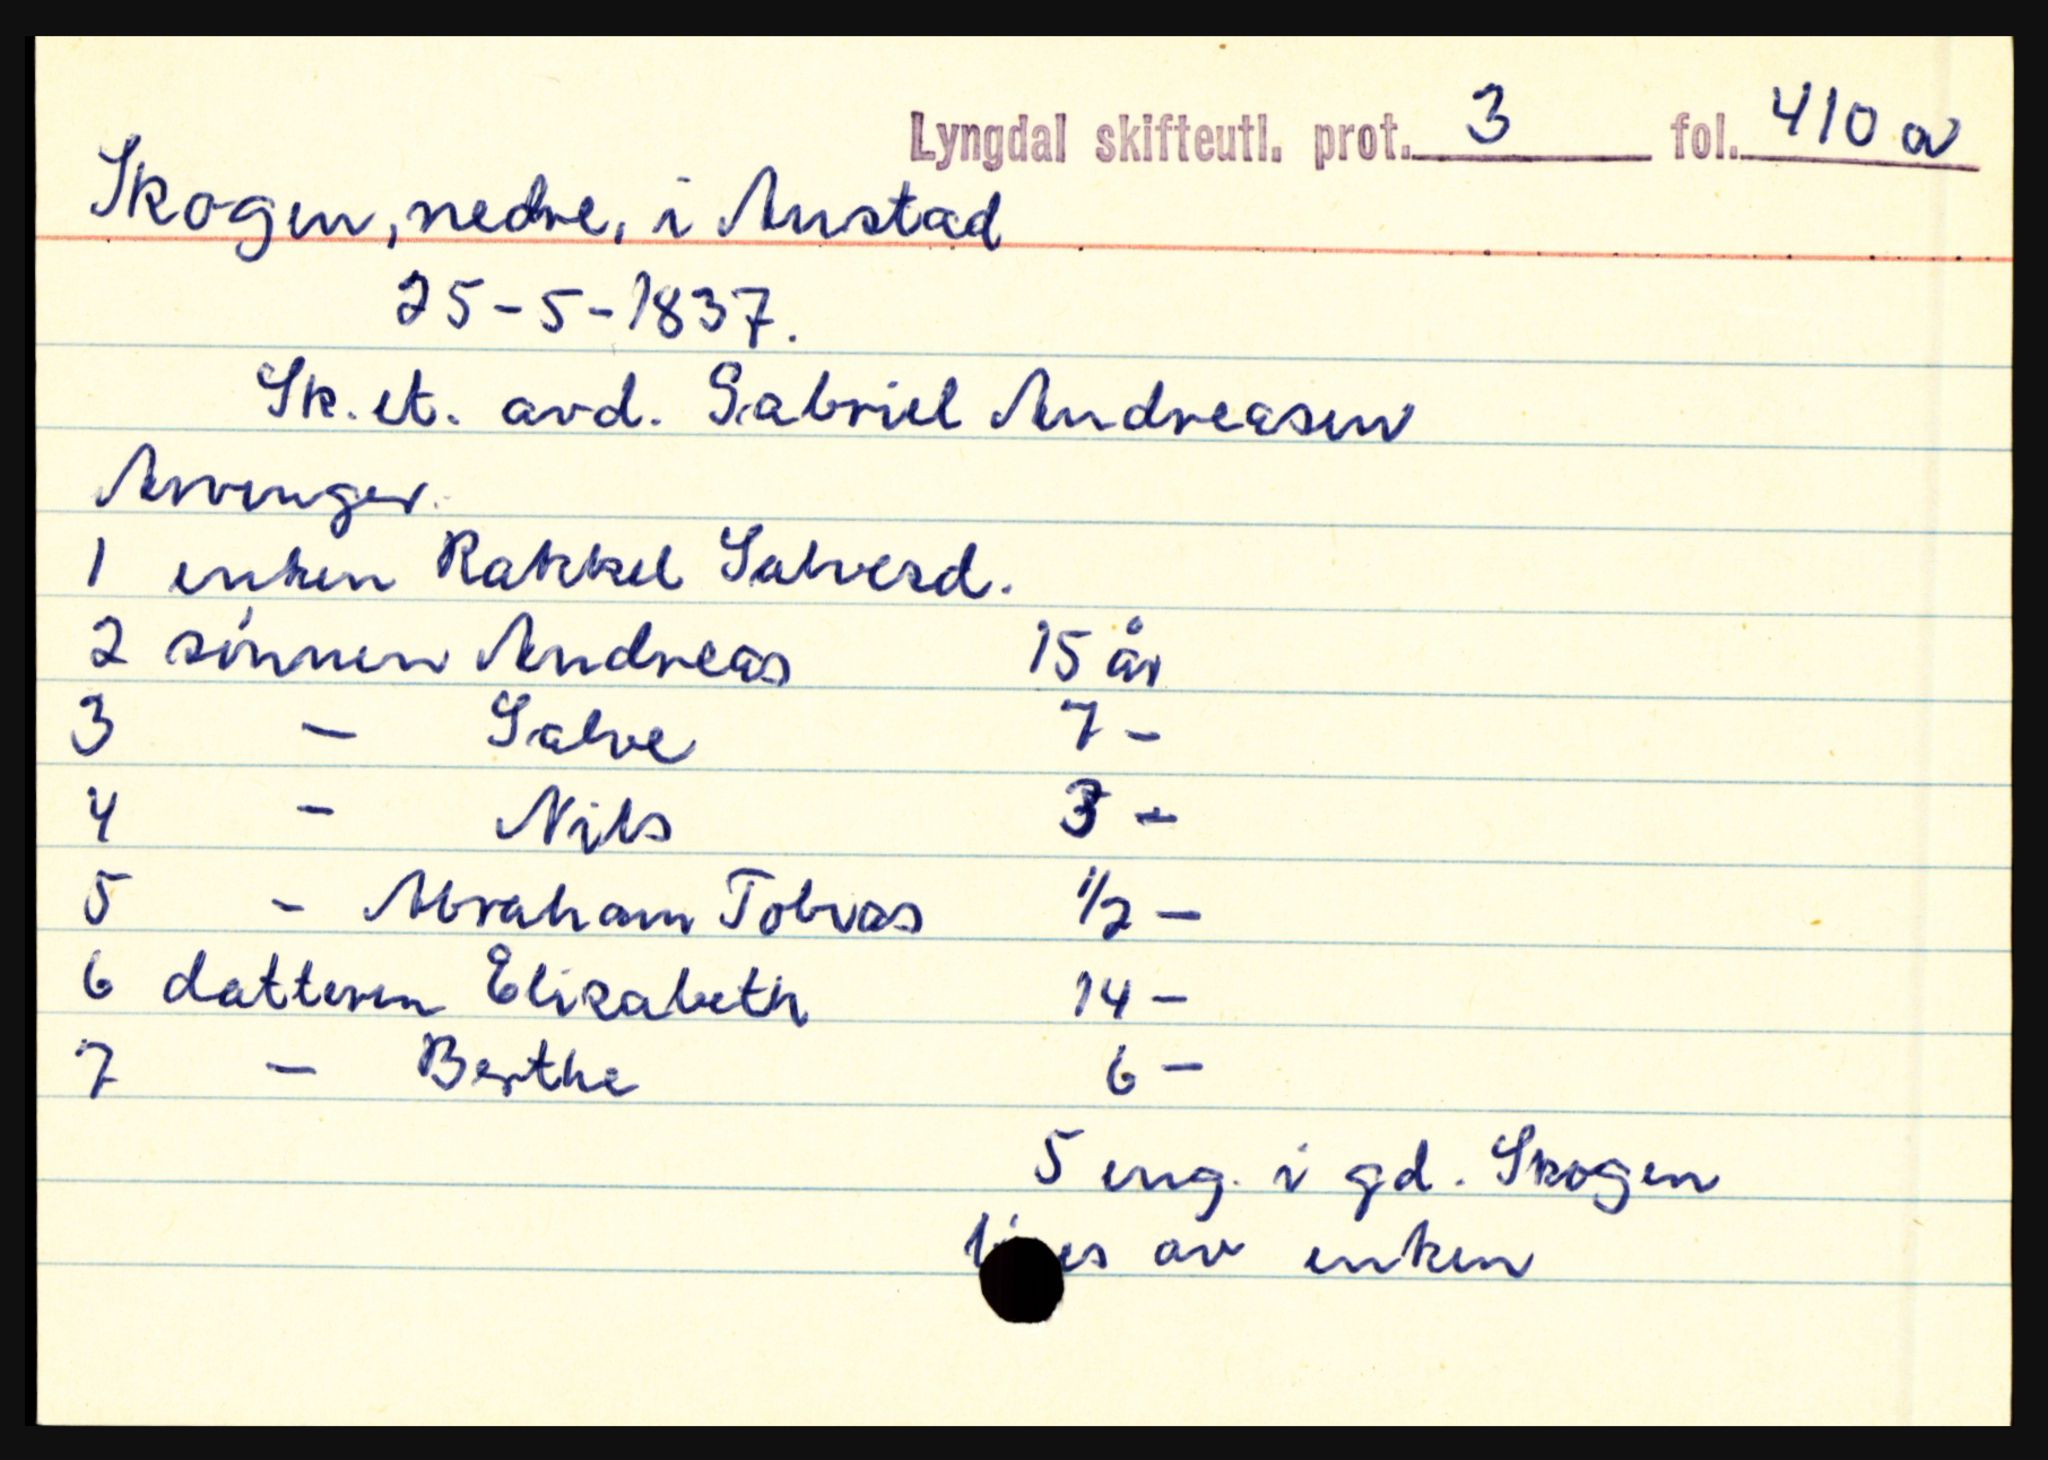 Lyngdal skifteutl. prot. 3 fol. 410 a
Skogen, nedre, i Austad
25-5-1837.
Sk. et. avd. Gabriel Andreasen
Arvinger.
1 enken Rakkel Salvesd.
2 sønnen Andreas 15 år
3 - Salve 7 -
4 - Nils 3 -
5 - Abraham Tobias 1/2 -
6 datteren Elizabeth 14 -
7 - Berthe 6 -
5 eng. i gd. Skogen
av enken